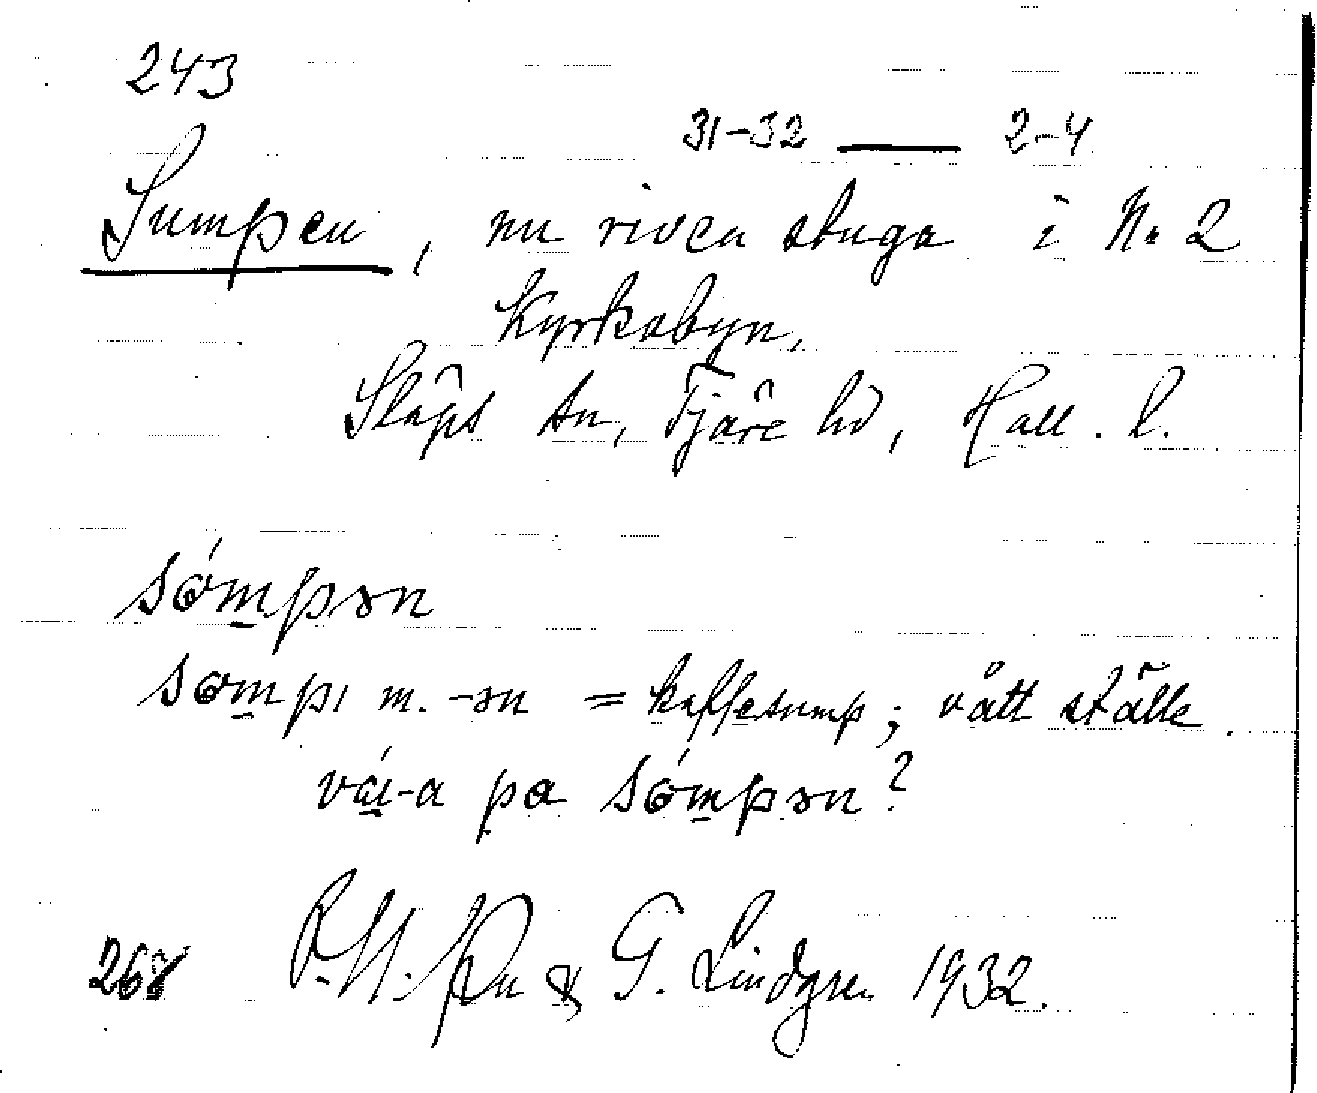 243
31-32 — 2-4
Sumpen, nu riven stuga i Nr 2
Kyrkobyn,
Släps sn, Fjäre hd, Hall. l.
sómpən
sompı m. -ən = kaffesump; vått ställe.
vái-a pa sómpən?
268 & G. Lindgren 1932.